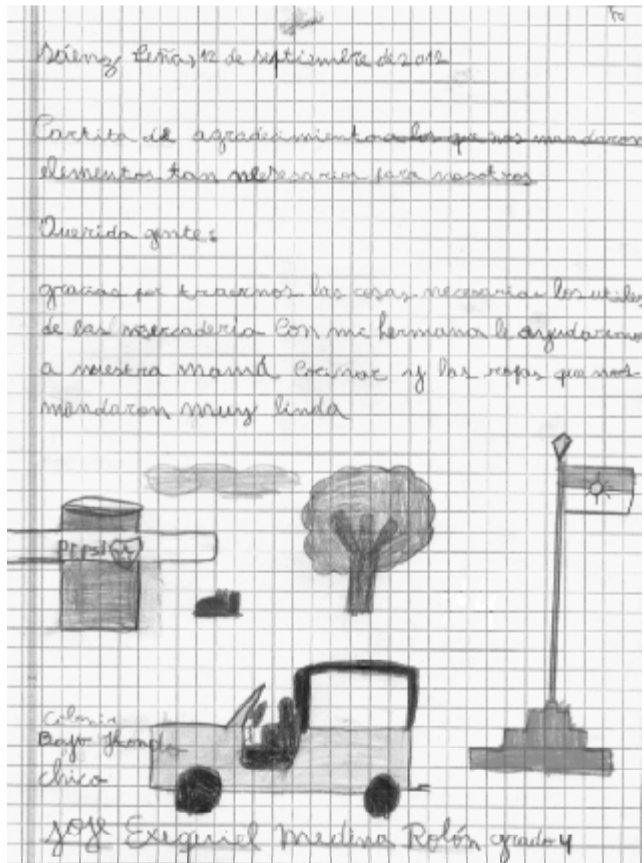 Sáenz Peña, 12 de septiembre de 2012
Cartita de agradecimiento a los que nos mandaron
elementos tan nesesarios para nosotros
Querida gente:
gracias por traernos las cosas necesaria los utiles
de las mercaderia Con mi hermana le ayudaremos
a nuestra mamá cocinar y las ropas que nos
mandaron muy linda
pepsi
Colonia
Bajo Hondo
chico
José Exequiel Medina Rolón grado 4